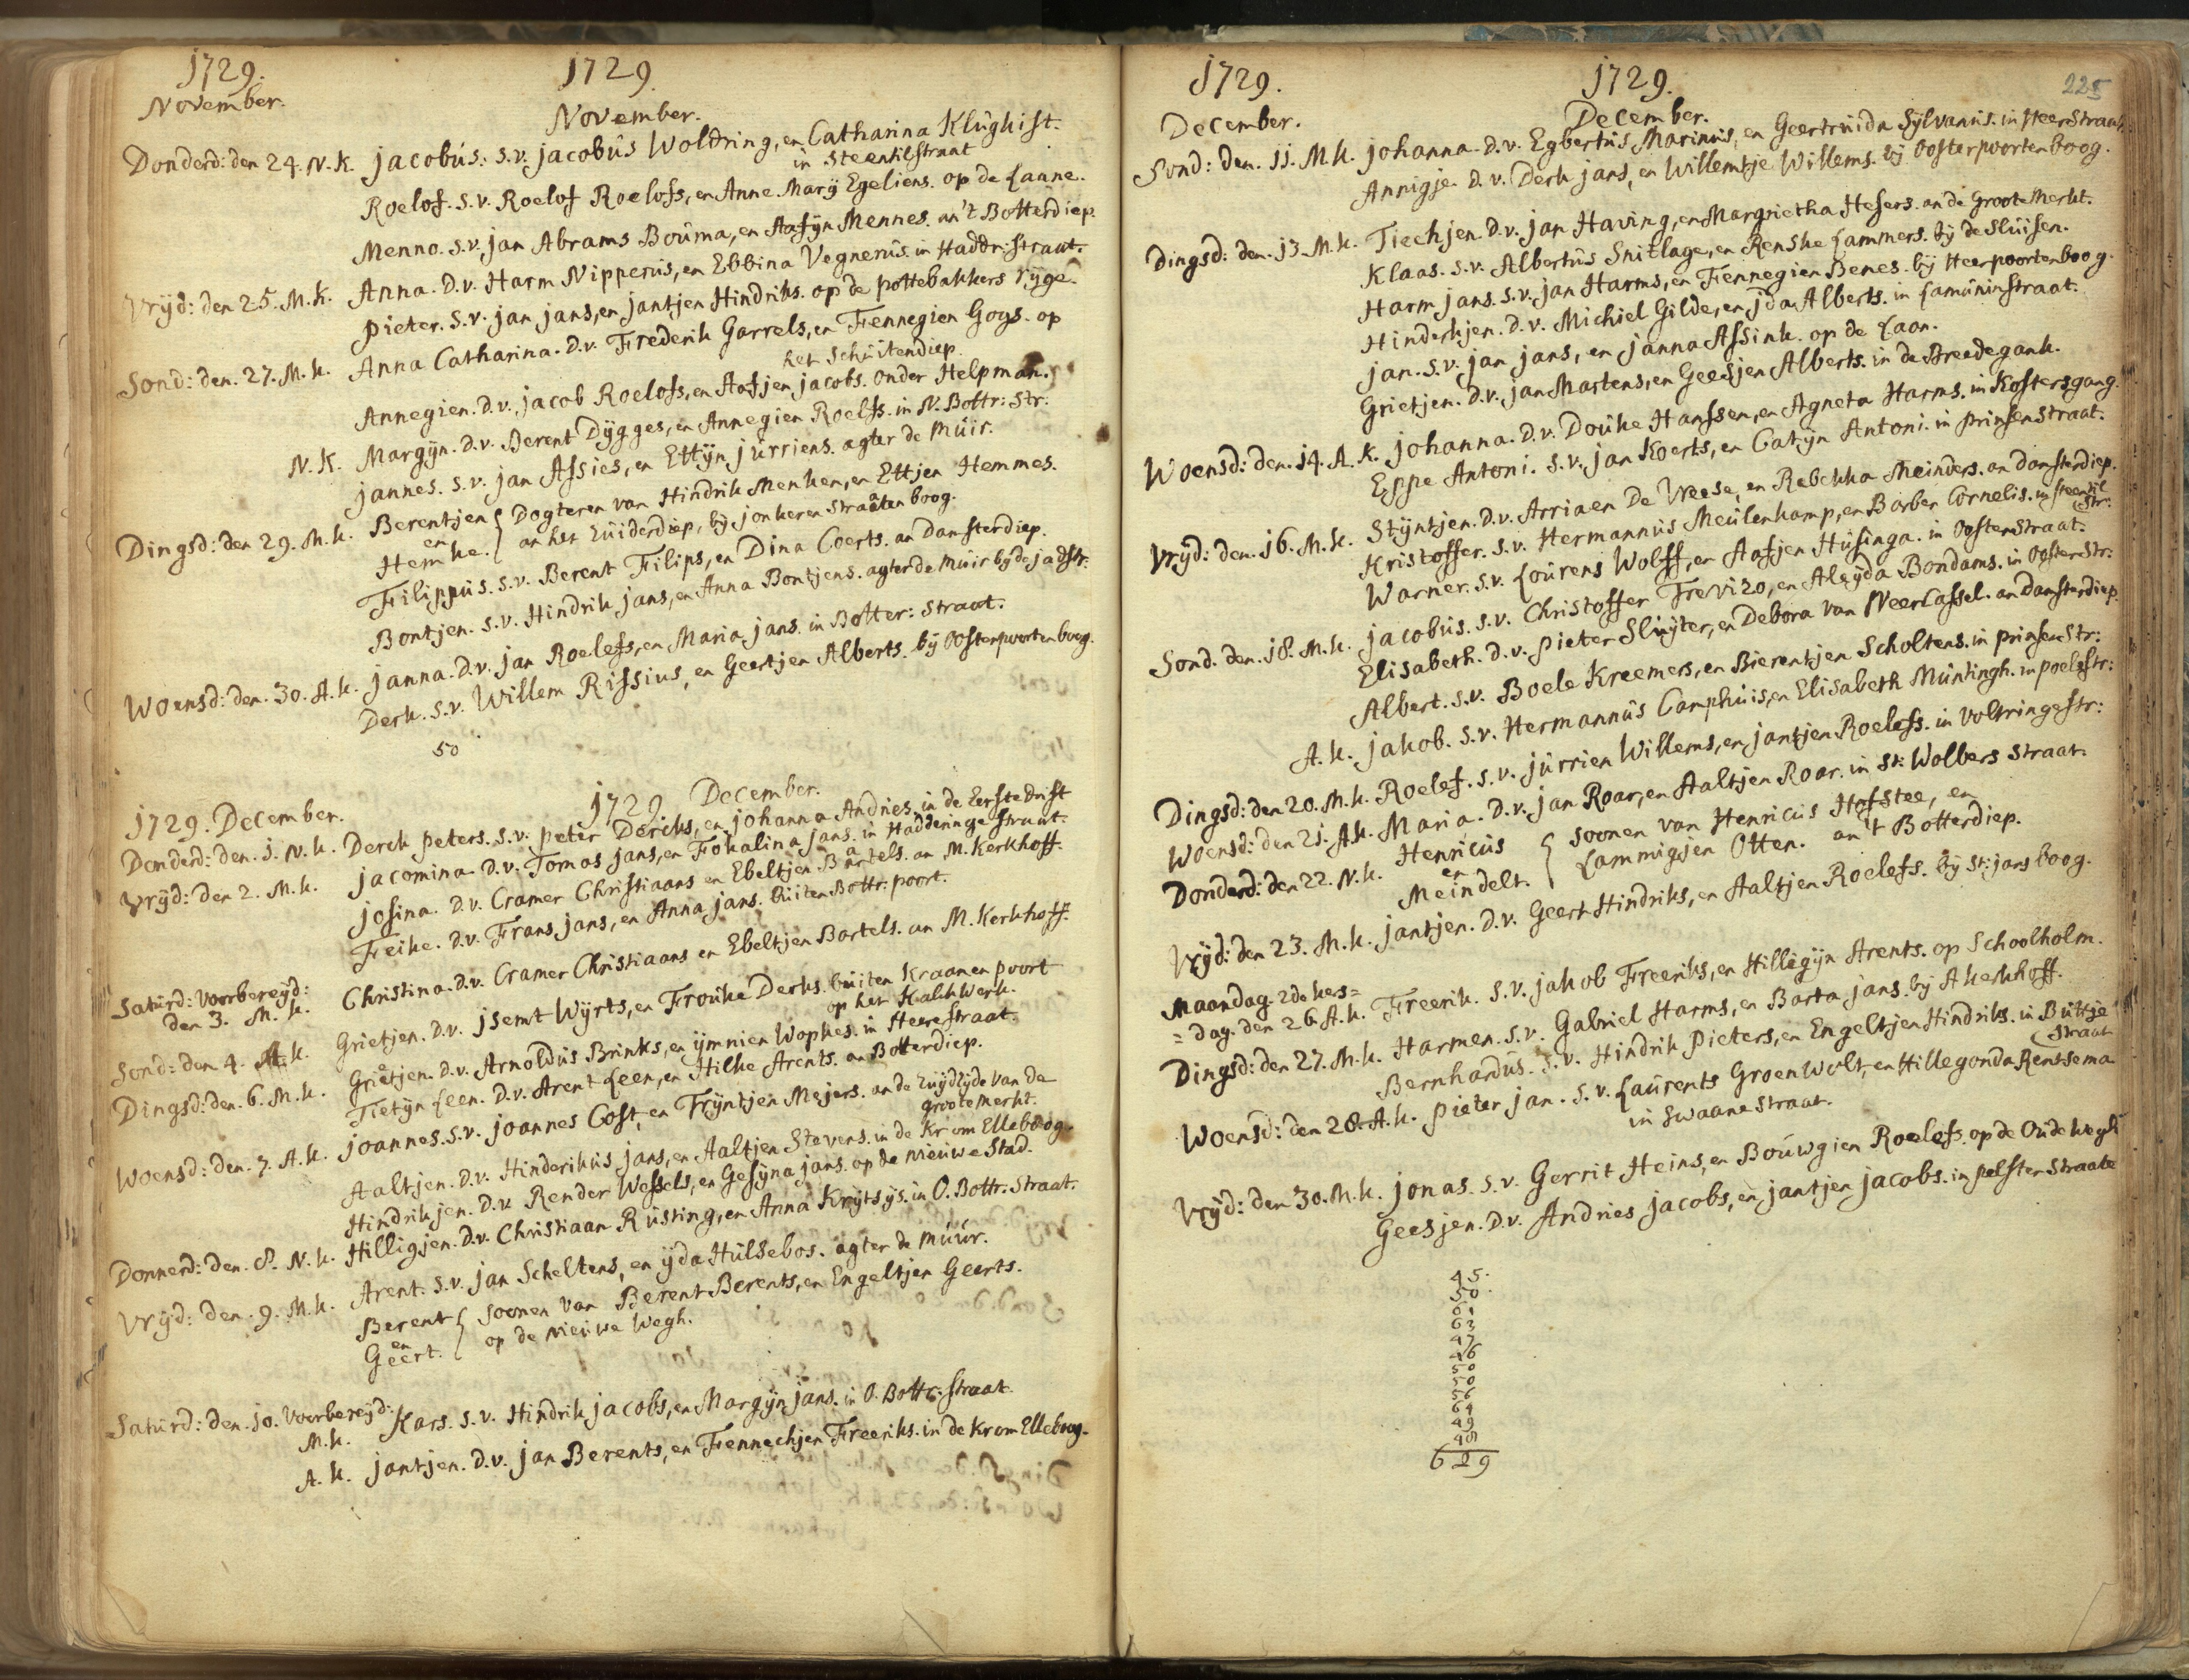 1729. 1729
November. November.
Donderd: den 24. N. K. jacobús. s.v. jacobús Woldring, en Catharina Klúghist.
in Steentilstraat
Roelof. s.v. Roelof Roelofs, en Anne Marÿ Egeliens. op de Laane.
Menno. s.v. jan Abrams Boúma, en Aafÿn Mennes. an't Botterdiep.
Vrÿd: den 25. M. K. Anna. D.v. Harm Nipperús, en Ebbina Vegnerús. in Haddr: straat.
pieter. s.v. jan jans, en jantjen Hindriks. op de pottebakkers rÿge.
Sond: den. 27. M. k. Anna Catharina. D.v. Frederik Garrels, en Fennegien Goys. op
het Schúitendiep.
Annegien. D.v. jacob Roelofs, en Aafjen jacobs. onder Helpman.
N. K. Margÿn. D.v. Berent Dÿgges, en Annegien Roelfs. in N. Bottr: Str:
jannes. s.v. jan Assies, en Ettÿn júrriens. agter de Múir.
Dingsd: den 29. M. k. Berentjen { Dogteren van Hindrik Menken, en Ettjen Hemmes.
en
Hemke. an het Zúiderdiep, bÿ jonkeren Straaten boog.
Filippús. s.v. Berent Filips, en Dina Coerts. an Damsterdiep.
Bontjen. s.v. Hindrik jans, en Anna Bontjens. agter de Múir bÿ de jadstr.
Woensd: den. 30. A. k. janna. D.v. jan Roelefs, en Maria jans. in Botter: Straat.
Derk. s.v. Willem Rissius, en Geertjen Alberts. bÿ Oosterpoorten boog.
50
1729. December. 1729. December.
Donderd: den. 1. N. k. Derck peters. s.v. peter Dercks, en johanna Andries. in de Eerste drift
Vrÿd: den 2. M. k. jacomina. D.v. Tomas jans, en Fokalina jans. in Hadderinge straat.
josina. D.v. Cramer Christiaans en Ebeltjen Bartels. an M. Kerkhoff.
Feike. D.v. Frans jans, en Anna jans. búiten Bottr: poort.
Satúrd: voorbereÿd:
den 3. M. k. Christina. D.v. Cramer Christiaans en Ebeltjen Bartels. an M. Kerkhoff.
Sond: den 4. A. k. Grietjen. D.v. jsemt Wÿrts, en Froúke Derks. búiten Kraanen poort
op het Kalckwerk.
Dingsd: den. 6. M. k. Grietjen. D.v. Arnoldús Brinks, en ÿmnien Wopkes. in Heerestraat.
Tietÿn Leen. D.v. Arent Leen, en Hilke Arents. an Botterdiep.
Woensd: den. 7. A. k. joannes. s.v. joannes Cost, en Trÿntjen Mejers. an de Zuÿdzÿde van de
grootemerkt.
Aaltjen. D.v. Hinderikús jans, en Aaltjen Stevens. in de Krom Elleboog.
Hindrikjen. D.v. Render Wessels, en Gesÿna jans. op de nieúwe Stad.
Donnerd: den. 8. N. k. Hilligjen. D.v. Christiaan Rústing, en Anna Krÿtsÿs. in O. Bottr. Straat.
Vrÿd: den. 9. M. k. Arent. s.v. jan Scheltens, en ÿda Húlsebos. agter de múúr.
Berent { soonen van Berent Berents, en Engeltjen Geerts.
en
Geert. op de nieúwe Wegh.
Satúrd: den. 10. Voorbereÿd:
M. k. Kars. s.v. Hindrik jacobs, en Margÿn jans. in O. Bottr: straat.
A. k. jantjen. D.v. jan Berents, en Fennechjen Freeriks. in de Krom Elleboog.
1729. 1729. 225
December. December.
Sond: den. 11. M. k. johanna. D.v. Egbertús Marinús, en Geertrúida Sÿlvanús. in HeerStraat.
Annigje. D.v. Derk jans, en Willemtje Willems. bÿ Oosterpoorten boog.
Dingsd: den. 13. M. k. Tiechjen. D.v. jan Having, en Margrietha Hesers. an de Groote Merkt.
Klaas. s.v. Albertús Snitlage, en Renske Lammers. bÿ de Slúisen.
Harm jans. s.v. jan Harms, en Fennegien Benes. bÿ Heerpoorten boog.
Hinderkjen. D.v. Michiel Gilde, en jda Alberts. in Lamúninstraat.
jan. s.v. jan jans, en janna Assink. op de Laan.
Grietjen. D.v. jan Martens, en Geesjen Alberts. in de Breedegank.
Woensd: den. 14. A. K. johanna. D.v. Doúke Hanssen, en Agneta Harms. in Kostersgang.
Eppe Antoni. s.v. jan Koerts, en Catÿn Antoni. in prinsenstraat.
Vrÿd: den. 16. M. k. Stÿntjen. D.v. Arriaen De Vreese, en Rebekka Meinders. an Damsterdiep.
Kristoffer. s.v. Hermannús Meúlenkamp, en Barber Cornelis. in steentil
Str:
Warner. s.v. Loúrens Wolff, en Aafjen Húsinga. in Oosterstraat.
Sond. den. 18. M. k. jacobús. s.v. Christoffer Trevizo, en Aleÿda Bondams. in OosterStr:
Elisabeth. d.v. pieter Slúÿter, en Debora van Neercassel. an Damsterdiep.
Albert. s.v. Boele Kreemers, en Bierentjen Scholtens. in prinsenstr:
A. k. jakob. s.v. Hermannús Camphúis, en Elisabeth Múntingh. in poelestr:
Dingsd: den 20. M. k. Roelef. s.v. júrrien Willems, en jantjen Roelefs. in Voltringestr:
Woensd: den 21. A. k. Maria. D.v. jan Roar, en Aaltjen Roar. in St: Wolbers straat.
Donderd: den 22. N. k. Henricús { soonen van Henricús Hofstee, en
en
Meindelt. Lammigjen Otten. an't Botterdiep.
Vrÿd: den 23. M. k. jantjen. D.v. Geert Hindriks, en Aaltjen Roelefs. bÿ St: jans boog.
Maandag. 2de kers=
=dag. den 26. A. k. Freerik. s.v. jakob Freeriks, en Hilligÿn Arents. op Schoolholm.
Dingsd: den 27. M. k. Harmen. s.v. Gabriel Harms, en Barta jans. bÿ A kerkhoff.
Bernhardús. s.v. Hindrik Pieters, en Engeltjen Hindriks. in Búttje
Straat
Woensd: den 28. A. k. pieter jan. s.v. Laúrents GroenWolt, en Hillegonda Rentsema
in Swaanestraat.
Vrÿd: den 30. M. k. jonas. s.v. Gerrit Heins, en Boúwgien Roelefs. op de Oude wegh
Geesjen. D.v. Andries jacobs, en jantjen jacobs. in pelsterstraate
45.
50.
61
63
47
46
50
50
56
64
49
48
629